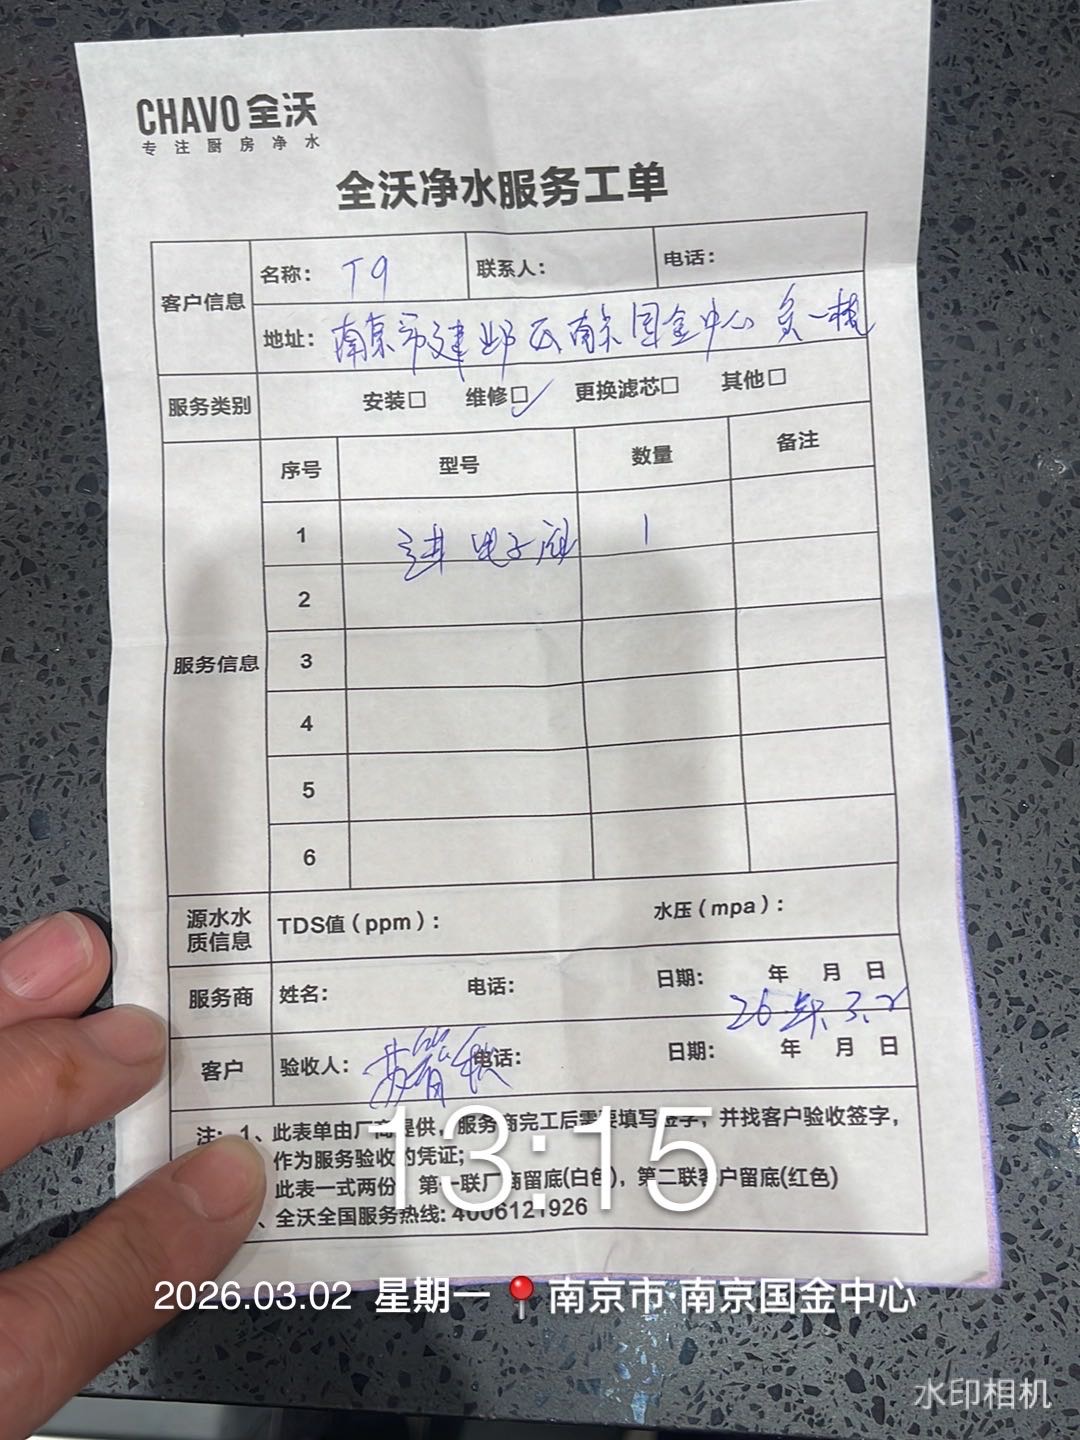 CHAVO 全沃
专注厨房净水
全沃净水服务工单
客户信息 名称： T9 联系人： 电话：
地址： 南京市建邺区南京国金中心负一楼
服务类别 安装□ 维修□✓ 更换滤芯□ 其他□
服务信息 序号 型号 数量 备注
1 进 电子阀 1
2
3
4
5
6
源水水质信息 TDS值（ppm）： 水压（mpa）：
服务商 姓名： 电话： 日期： 年 月 日
26年.3.2
客户 验收人： 电话： 日期： 年 月 日
注：1、此表单由厂商提供，服务商完工后需要填写签字，并找客户验收签字，
作为服务验收的凭证；
此表一式两份，第一联厂商留底(白色)，第二联客户留底(红色)
、全沃全国服务热线: 4006121926
13:15
2026.03.02 星期一 南京市·南京国金中心
水印相机